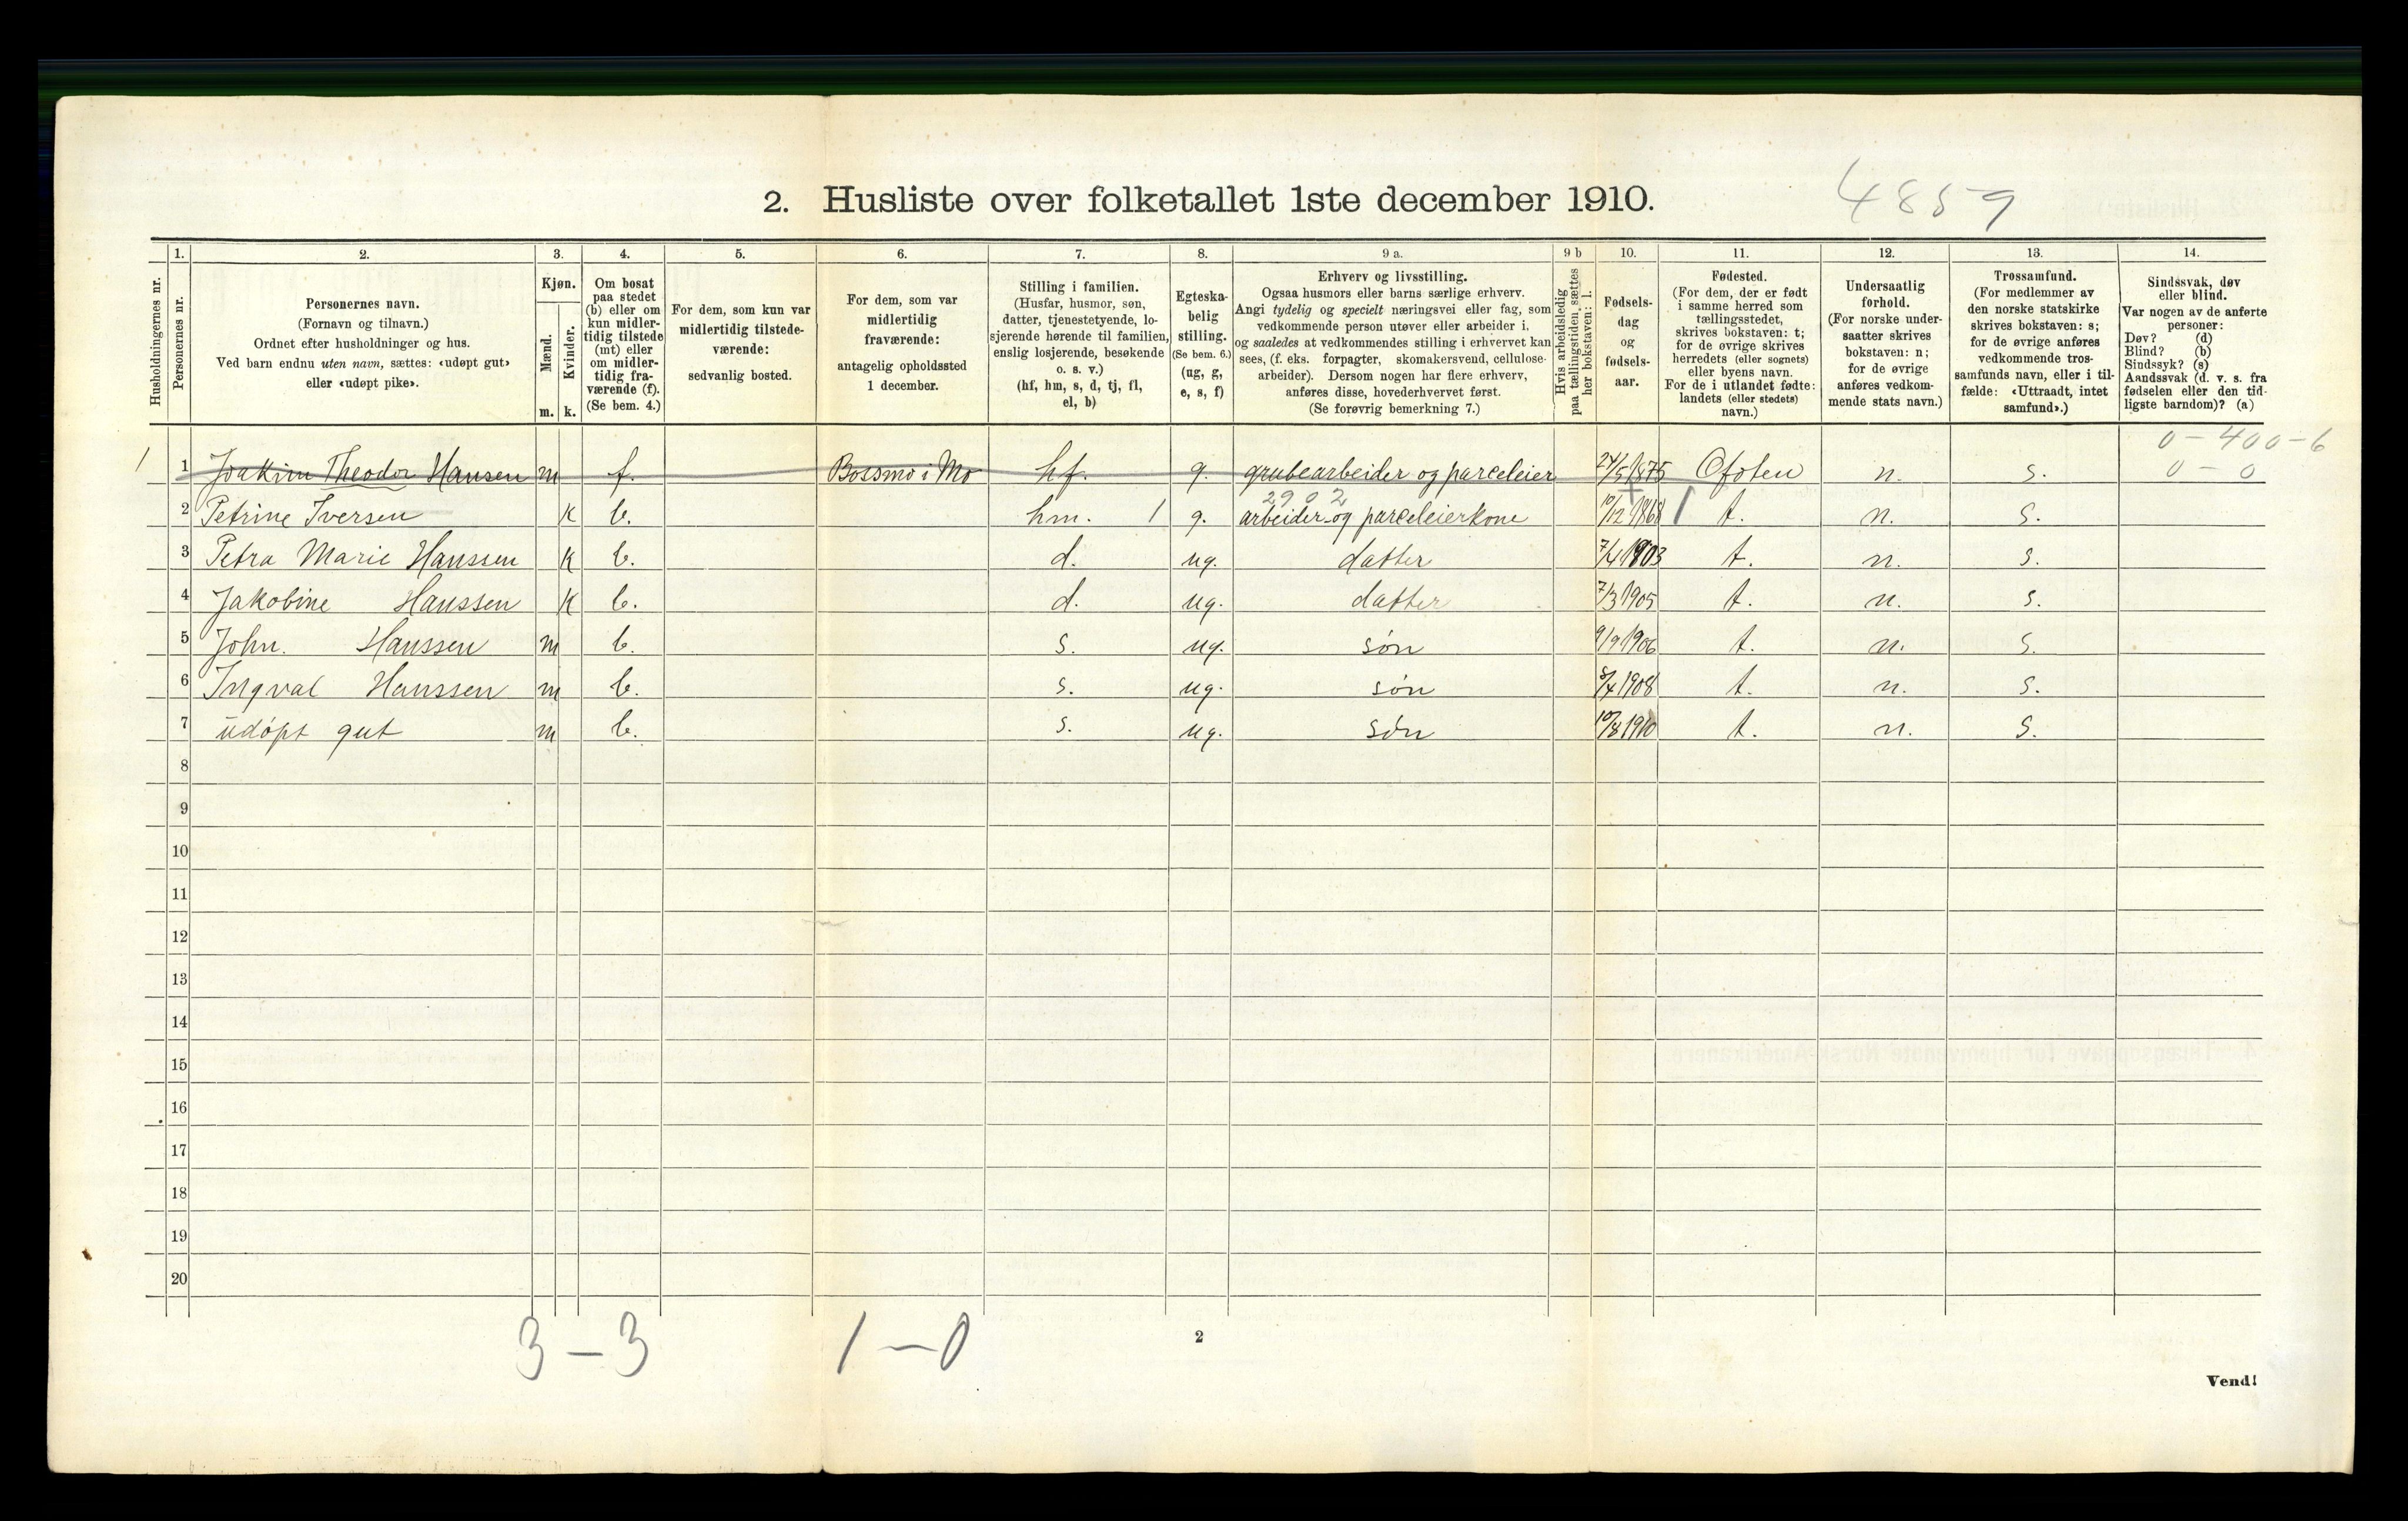 2. Husliste over folketallet 1ste december 1910.
4859
Husholdningernes nr.
1.
Personernes nr.
2.
Personernes navn.
(Fornavn og tilnavn.)
Ordnet efter husholdninger og hus.
Ved barn endnu uten navn, sættes: «udøpt gut»
eller «udøpt pike».
3.
Kjøn.
Mænd.
Kvinder.
m. k.
4.
Om bosat
paa stedet
(b) eller om
kun midler-
tidig tilstede
(mt) eller
om midler-
tidig fra-
værende (f).
(Se bem. 4.)
5.
For dem, som kun var
midlertidig tilstede-
værende:
sedvanlig bosted.
6.
For dem, som var
midlertidig
fraværende:
antagelig opholdssted
1 december.
7.
Stilling i familien.
(Husfar, husmor, søn,
datter, tjenestetyende, lo-
sjerende hørende til familien,
enslig losjerende, besøkende
o. s. v.)
(hf, hm, s, d, tj, fl,
el, b)
8.
Egteska-
belig
stilling.
(Se bem. 6.)
(ug, g,
e, s, f)
9 a.
Erhverv og livsstilling.
Ogsaa husmors eller barns særlige erhverv.
Angi tydelig og specielt næringsvei eller fag, som
vedkommende person utøver eller arbeider i,
og saaledes at vedkommendes stilling i erhvervet kan
sees, (f. eks. forpagter, skomakersvend, cellulose-
arbeider). Dersom nogen har flere erhverv,
anføres disse, hovederhvervet først.
(Se forøvrig bemerkning 7.)
9 b
Hvis arbeidsledig
paa tællingstiden, sættes
her bokstaven: l.
10.
Fødsels-
dag
og
fødsels-
aar.
11.
Fødested.
(For dem, der er født
i samme herred som
tællingsstedet,
skrives bokstaven: t;
for de øvrige skrives
herredets (eller sognets)
eller byens navn.
For de i utlandet fødte:
landets (eller stedets)
navn.)
12.
Undersaatlig
forhold.
(For norske under-
saatter skrives
bokstaven: n;
for de øvrige
anføres vedkom-
mende stats navn.)
13.
Trossamfund.
(For medlemmer av
den norske statskirke
skrives bokstaven: s;
for de øvrige anføres
vedkommende tros-
samfunds navn, eller i til-
fælde: «Uttraadt, intet
samfund».)
14.
Sindssvak, døv
eller blind.
Var nogen av de anførte
personer:
Døv? (d)
Blind? (b)
Sindssyk? (s)
Aandssvak (d. v. s. fra
fødselen eller den tid-
ligste barndom)? (a)
0 - 400 - 6
1 1 Joakim Theodor Hansen m f. Bossmo i Mo hf. g. grubearbeider og parceleier 24/5 1875 Ofoten n. s. 0 - 0
2902
2 Petrine Iversen k b. hm. 1 g. arbeider og parceleierkone 10/12 1868 t. n. s.
3 Petra Marie Hanssen k b. d. ug. datter 7/4 1903 t. n. s.
4 Jakobine Hanssen k b. d. ug. datter 7/3 1905 t. n. s.
5 John. Hanssen m b. s. ug. søn 9/9 1906 t. n. s.
6 Ingval Hanssen m b. s. ug. søn 8/4 1908 t. n. s.
7 udøpt gut m b. s. ug. søn 10/8 1910 t. n. s.
8
9
10
11
12
13
14
15
16
17
18
19
20
3 - 3 1 - 0
2
Vend!